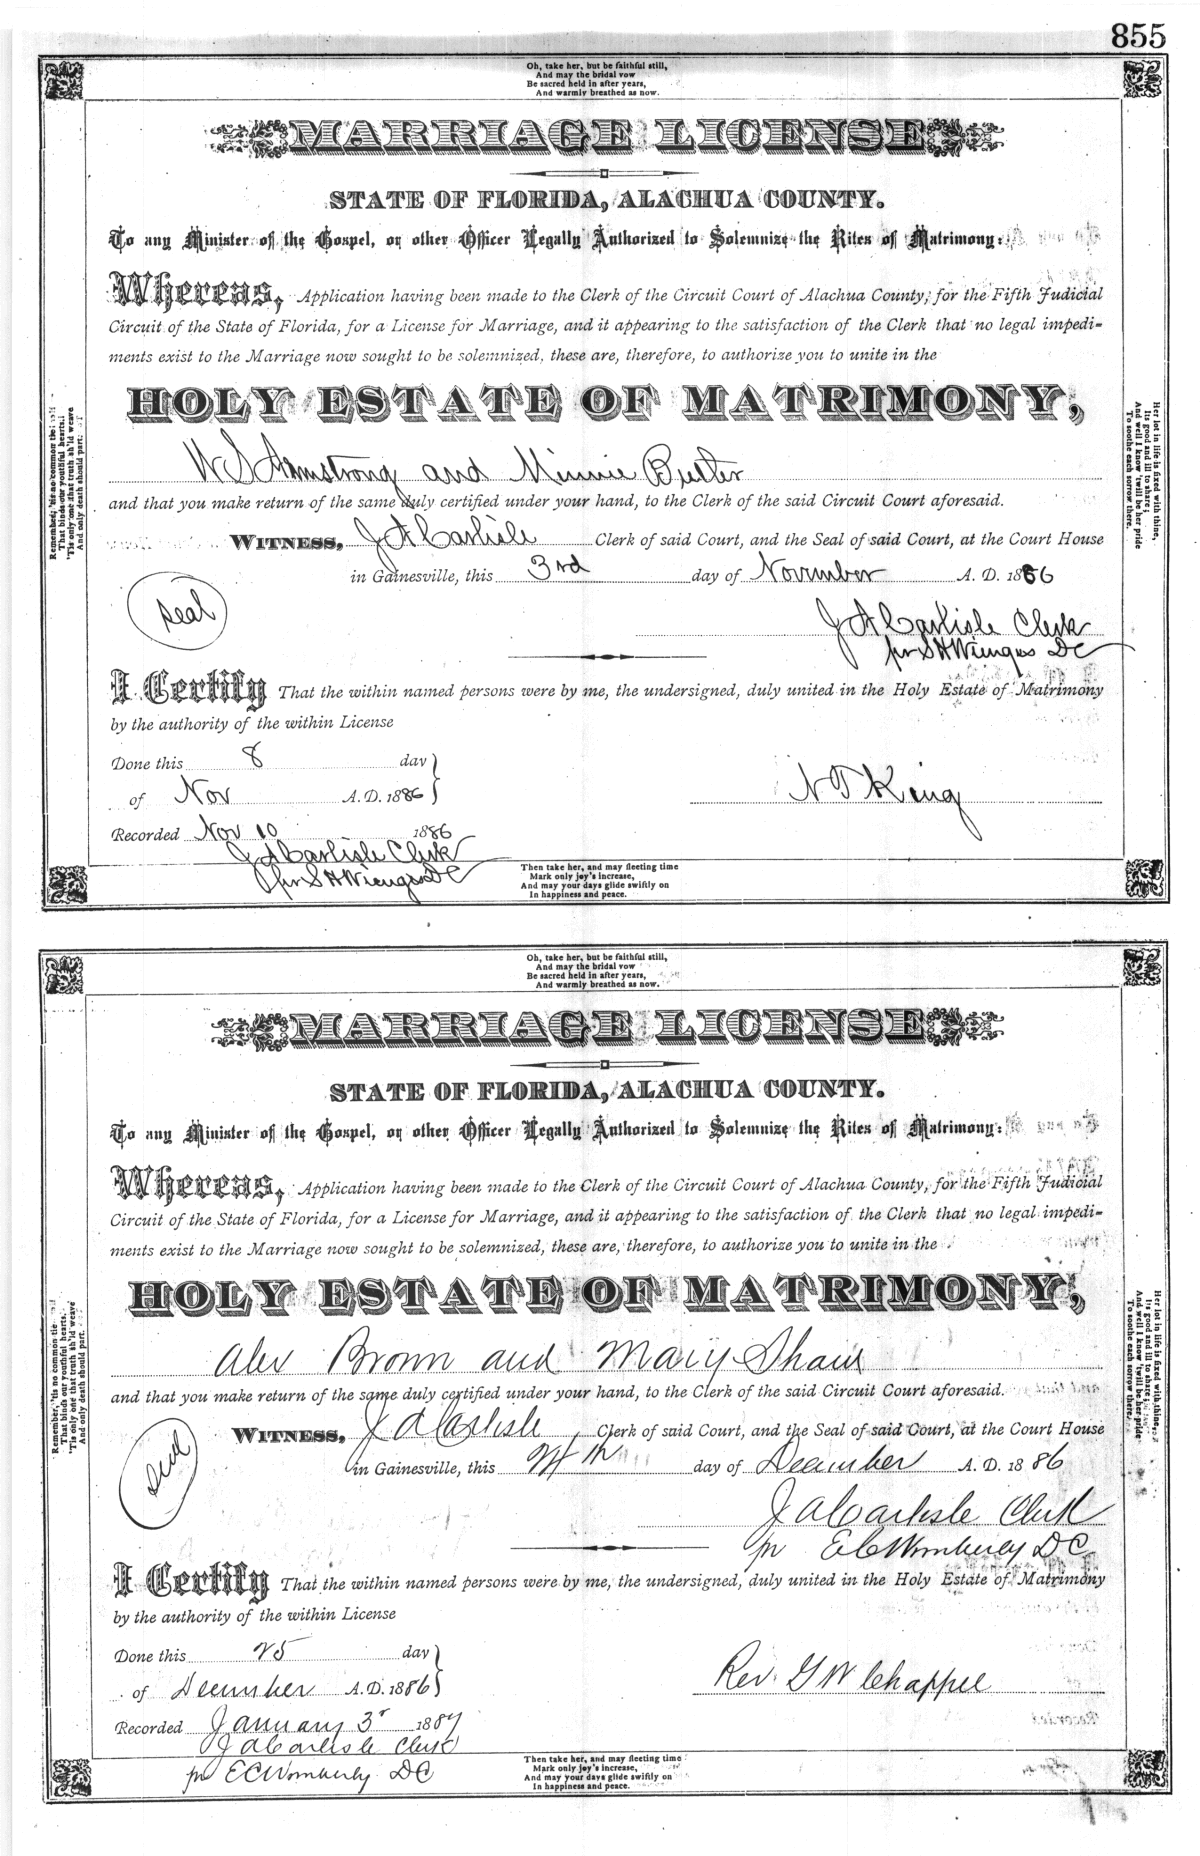 855
Oh, take her, but be faithful still,
And may the bridal vow
Be sacred held in after years,
And warmly breathed as now.
MARRIAGE LICENSE
STATE OF FLORIDA, ALACHUA COUNTY.
To any Minister of the Gospel, or other Officer Legally Authorized to Solemnize the Rites of Matrimony:
Whereas, Application having been made to the Clerk of the Circuit Court of Alachua County, for the Fifth Judicial
Circuit of the State of Florida, for a License for Marriage, and it appearing to the satisfaction of the Clerk that no legal impedi-
ments exist to the Marriage now sought to be solemnized, these are, therefore, to authorize you to unite in the
HOLY ESTATE OF MATRIMONY,
W S Armstrong and Minnie
and that you make return of the same duly certified under your hand, to the Clerk of the said Circuit Court aforesaid.
WITNESS, J A Carlisle Clerk of said Court, and the Seal of said Court, at the Court House
in Gainesville, this 3rd day of November A. D. 1886
Seal
J A Carlisle Clerk
pr S H Wienges DC
I Certify That the within named persons were by me, the undersigned, duly united in the Holy Estate of Matrimony
by the authority of the within License
Done this 8 day
of Nov A.D. 1886
N T King
Recorded Nov 10 1886
J A Carlisle Clerk
pr S H Wienges DC
Remember, 'tis no common tie
That binds our youthful hearts,
'Tis only one that truth sh'ld weave
And only death should part.
Her lot in life is fixed with thine,
Its good and ill to share;
And well I know 'twill be her pride
To soothe each sorrow there.
Then take her, and may fleeting time
Mark only joy's increase,
And may your days glide swiftly on
In happiness and peace.
Oh, take her, but be faithful still,
And may the bridal vow
Be sacred held in after years,
And warmly breathed as now.
MARRIAGE LICENSE
STATE OF FLORIDA, ALACHUA COUNTY.
To any Minister of the Gospel, or other Officer Legally Authorized to Solemnize the Rites of Matrimony:
Whereas, Application having been made to the Clerk of the Circuit Court of Alachua County, for the Fifth Judicial
Circuit of the State of Florida, for a License for Marriage, and it appearing to the satisfaction of the Clerk that no legal impedi-
ments exist to the Marriage now sought to be solemnized, these are, therefore, to authorize you to unite in the
HOLY ESTATE OF MATRIMONY,
Alex Brown and Mary Shaw
and that you make return of the same duly certified under your hand, to the Clerk of the said Circuit Court aforesaid.
WITNESS, J A Carlisle, Clerk of said Court, and the Seal of said Court, at the Court House
in Gainesville, this day of December A. D. 1886
Seal
J A Carlisle Clerk
pr E C Wimberly DC
I Certify That the within named persons were by me, the undersigned, duly united in the Holy Estate of Matrimony
by the authority of the within License
Done this 25 day
of December A.D. 1886
Rev. G W Chappel
Recorded January 3r 1887
J A Carlisle Clerk
pr E C Wimberly DC
Remember, 'tis no common tie
That binds our youthful hearts,
'Tis only one that truth sh'ld weave
And only death should part.
Her lot in life is fixed with thine,
Its good and ill to share;
And well I know 'twill be her pride
To soothe each sorrow there.
Then take her, and may fleeting time
Mark only joy's increase,
And may your days glide swiftly on
In happiness and peace.